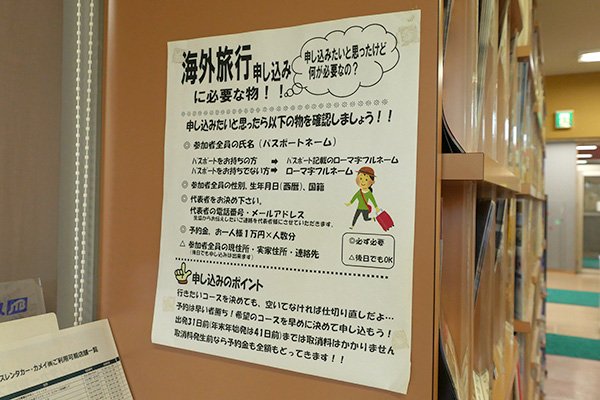 海外旅行申し込み
に必要な物！！
申し込みたいと思ったけど
何が必要なの？
申し込みたいと思ったら以下の物を確認しましょう！！
◎ 参加者全員の氏名（パスポートネーム）
パスポートをお持ちの方 ➡ パスポート記載のローマ字フルネーム
パスポートをお持ちでない方➡ ローマ字フルネーム
◎ 参加者全員の性別、生年月日(西暦)、国籍
◎ 代表者をお決め下さい。
代表者の電話番号・メールアドレス
支店からお伝えしたいご連絡を代表者様にさせていただきます。
◎ 予約金、お一人様1万円×人数分
△ 参加者全員の現住所・実家住所・連絡先
(後日でも申し込みは出来ます)
◎必ず必要
△後日でもOK
申し込みのポイント
行きたいコースを決めても、空いてなければ仕切り直しだよ…
予約は早い者勝ち！希望のコースを早めに決めて申し込もう！
出発31日前(年末年始発は41日前)までは取消料はかかりません
取消料発生前なら予約金も全額もどってきます！！
スレンタカー・カメイ㈱ご利用可能店舗一覧